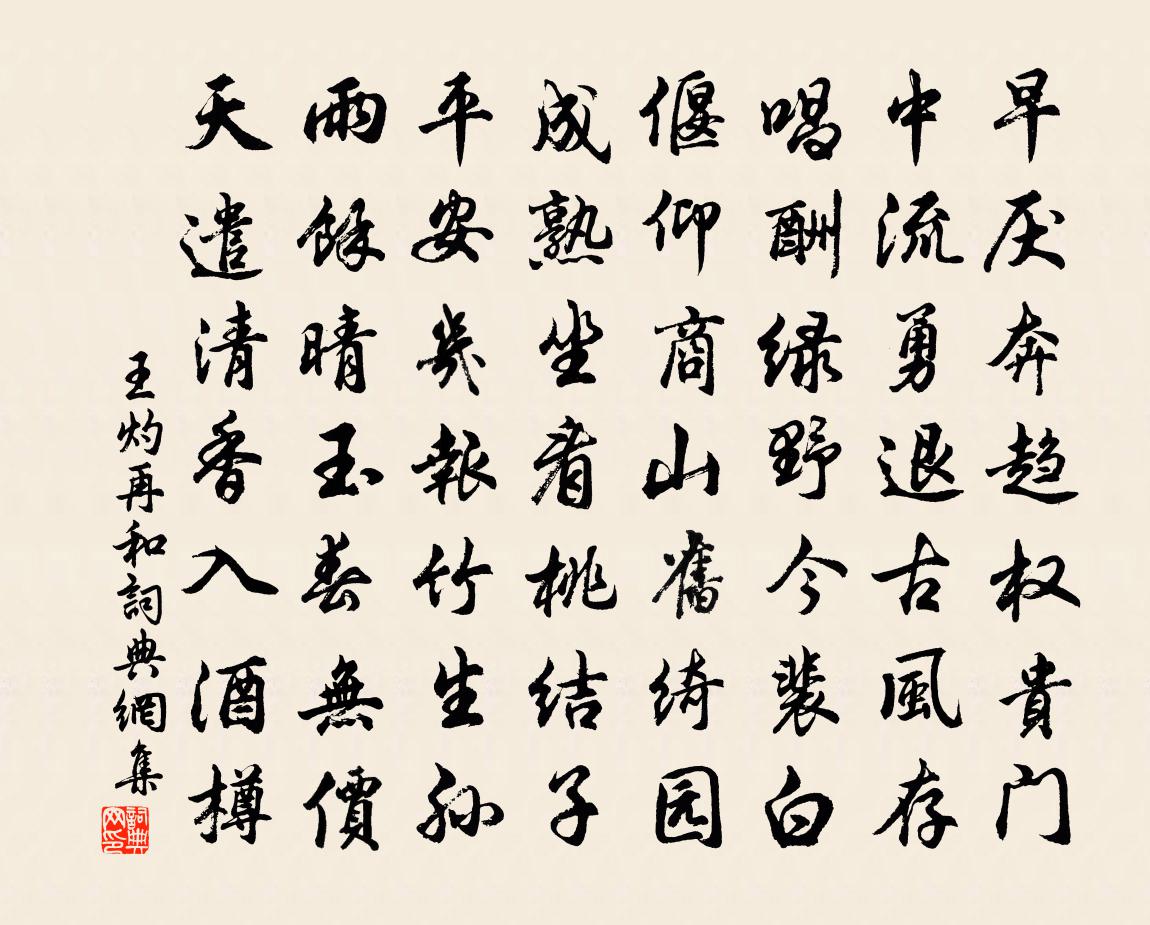 早厌奔趋权貴门
中流勇退古風存
唱酬绿野今裴白
偃仰商山舊绮园
成熟坐看桃结子
平安幾報竹生孙
雨餘晴玉春無價
天遣清香入酒樽
王灼再和詞典網集
詞典网印